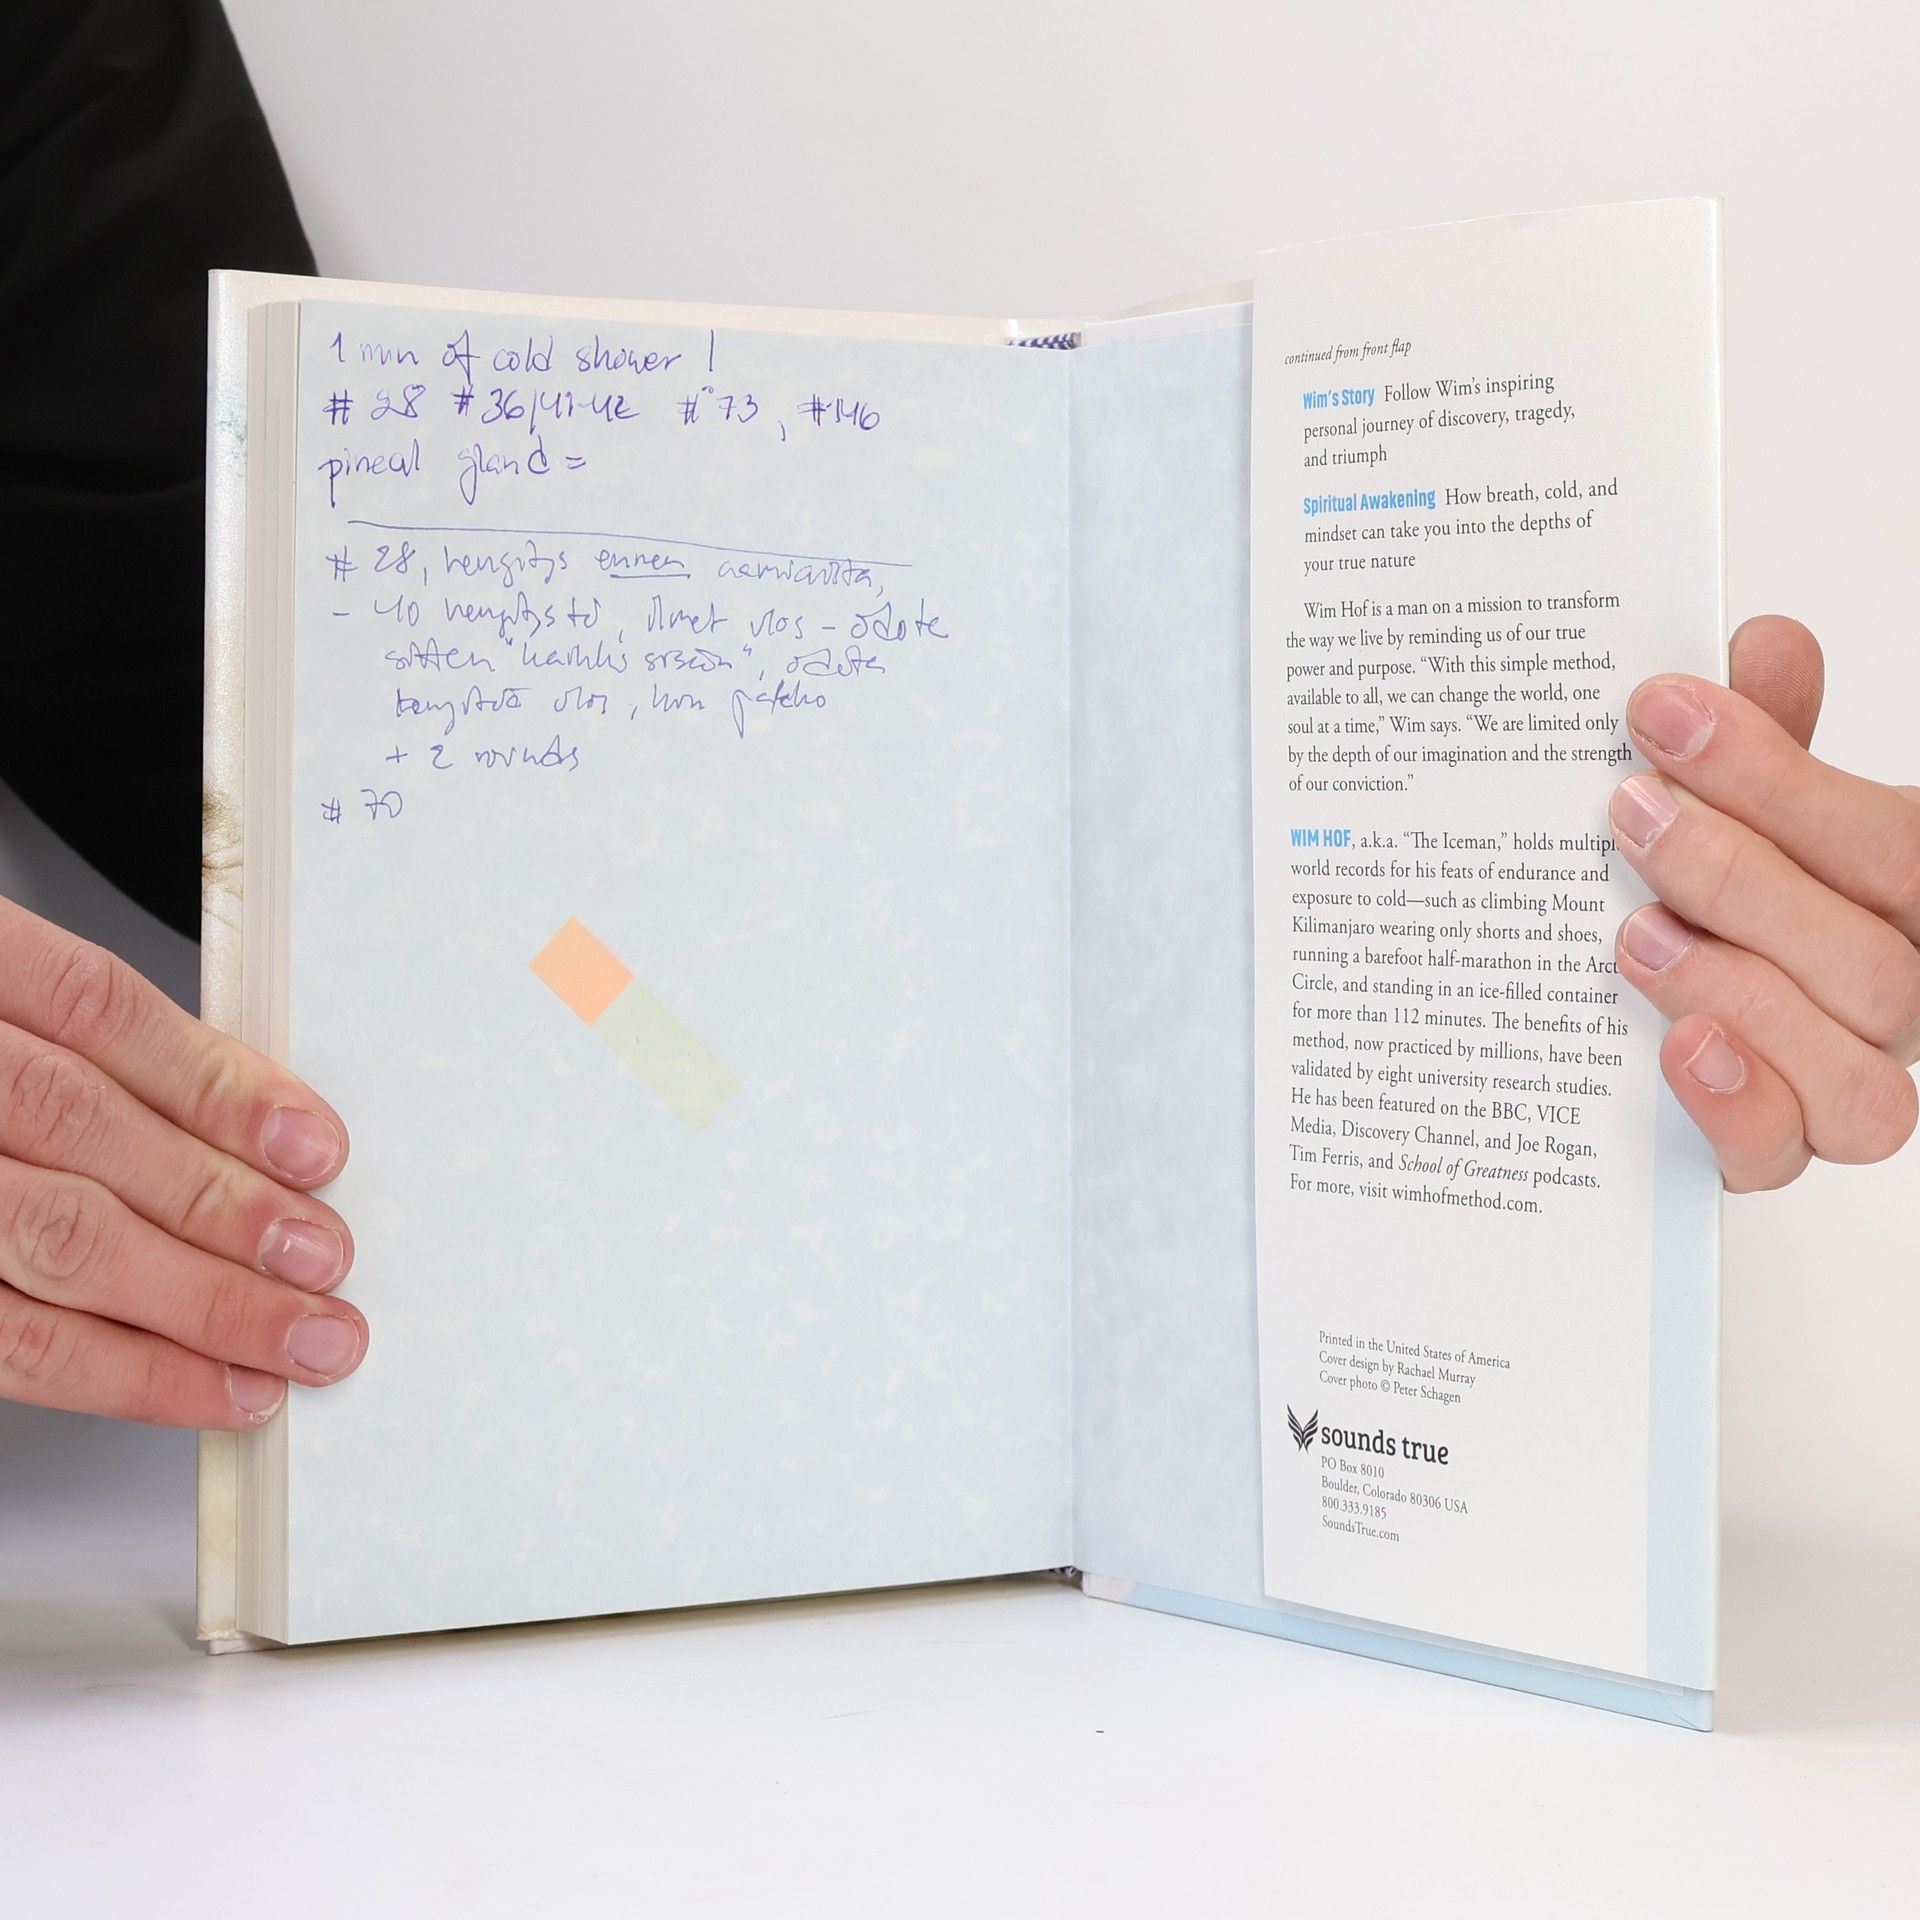 1 min of cold shower !
# 28 # 36/41-42 # 73, #146
pineal gland =
# 28, hengitys ennen aamiaista,
- 40 hengitystä, ilmat ulos - odota
sitten "kaikki sisään", odota
hengittää ulos, kun pakko
+ 2 rounds
# 70
continued from front flap
Wim's Story Follow Wim's inspiring
personal journey of discovery, tragedy,
and triumph
Spiritual Awakening How breath, cold, and
mindset can take you into the depths of
your true nature
Wim Hof is a man on a mission to transform
the way we live by reminding us of our true
power and purpose. “With this simple method,
available to all, we can change the world, one
soul at a time,” Wim says. “We are limited only
by the depth of our imagination and the strength
of our conviction.”
WIM HOF, a.k.a. “The Iceman,” holds multipl
world records for his feats of endurance and
exposure to cold—such as climbing Mount
Kilimanjaro wearing only shorts and shoes,
running a barefoot half-marathon in the Arct
Circle, and standing in an ice-filled container
for more than 112 minutes. The benefits of his
method, now practiced by millions, have been
validated by eight university research studies.
He has been featured on the BBC, VICE
Media, Discovery Channel, and Joe Rogan,
Tim Ferris, and School of Greatness podcasts.
For more, visit wimhofmethod.com.
Printed in the United States of America
Cover design by Rachael Murray
Cover photo © Peter Schagen
sounds true
PO Box 8010
Boulder, Colorado 80306 USA
800.333.9185
SoundsTrue.com